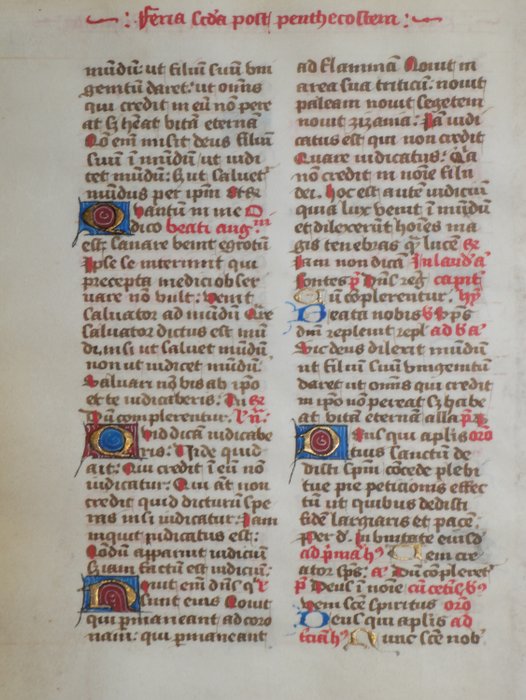 Feria scd'a post penthecosten
mūdū: ut filiū suū vni
genitū daret: ut omīs
qui credit in eū nō pere
at sz heat vitā eternā
Nō em̄ misit deus filiū
suū ī mūdū ut iudi
cet mūdū: sz ut saluet̄
mūdus per ip̄m
Quantū in me
dico beati auḡ
est: sanare venit egrotū
Ipse se interimit qui
precepta medici obser
uare nō vult. Venit
saluator ad mūdū
saluator dictus est mū
di, nisi ut saluet mūdū
non ut iudicet mūdū
Saluari nō vis ab ip̄o
et te iudicaberis.
Dū complerentur.
Quid dicā iudicabe
ris: Vide quid
ait: Qui credit ī eū nō
iudicatur: Qui aūt non
credit quid dicturū spe
ras nisi iudicatur: Iam
inquit iudicatus est:
Nōdū apparuit iudiciū
sz iam factū est iudiciū:
Nouit em̄ dn̄s q̄
sunt eius Nouit
qui p̄maneant ad coro
nam: qui p̄maneant
ad flammā Nouit in
area sua triticū: nouit
paleam nouit segetem
nouit zizania: Iā iudi
catus est qui non credit
Quare iudicatus: Q'a
nō credit in noīe filii
dei. Hoc est autē iudiciū
quia lux venit ī mūdū
et dilexerūt hoīes ma
gis tenebras q̄ lucē
Iam non dicā In laud'
fontes dn̄s reḡ capit̄
Cū cōplerentur
Beata nobis
dīm repleuit repl' ad
Sic deus dilexit mūdū
ut filiū suū vnigenitū
daret ut omīs qui credit
in ip̄o nō pereat sz habe
at vitā eternā alla
Deus qui aplis oro
tuis sanctū de
disti spm cōcede plebi
tue pie peticionis effec
tū ut quibus dedisti
fidē largiaris et pacē.
Per d'. In vnitate eiusd'
ad p̄mā Iem cre
ator sps: a' Dū cōpleret'
Deus ī noīe
Veni scē spiritus oro
Deus qui aplis ad
terciā Nunc scē nob'